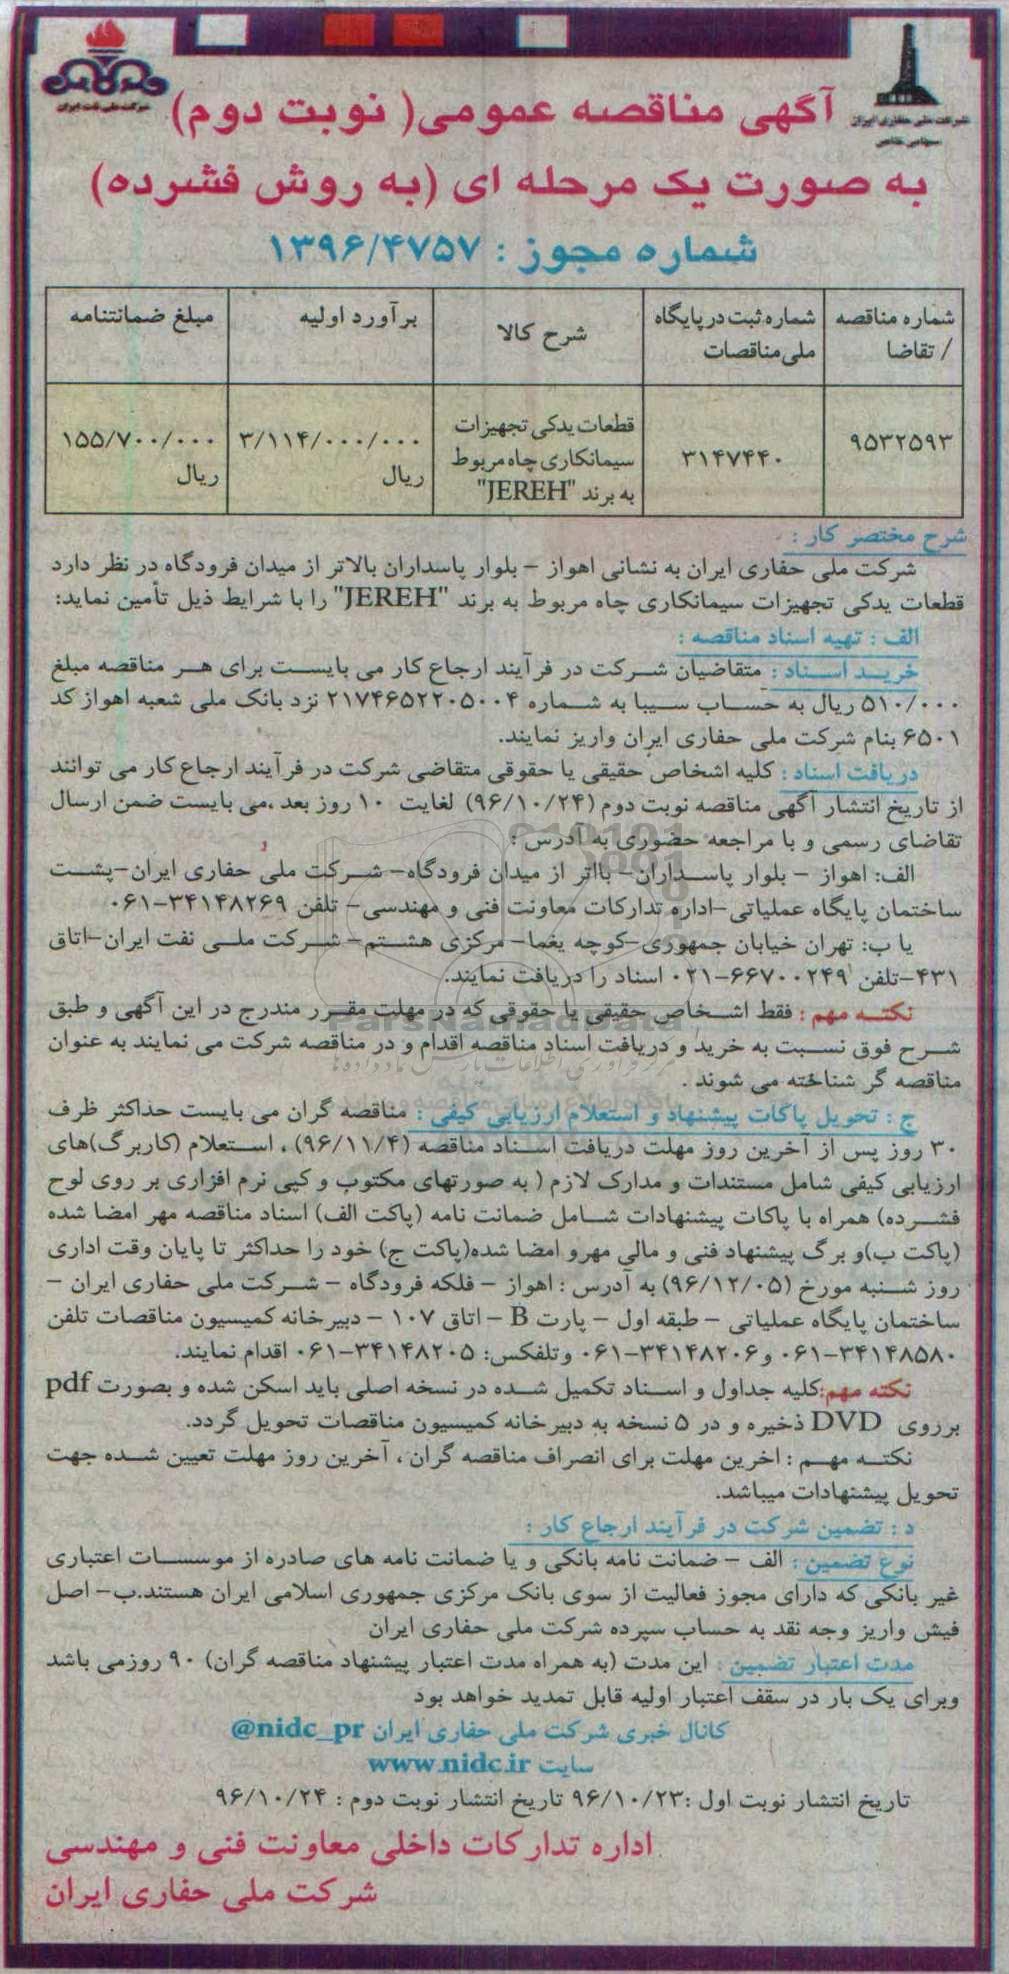 شرکت ملی نفت ایران
شرکت ملی حفاری ایران
سهامی خاص
آگهی مناقصه عمومی( نوبت دوم)
به صورت یک مرحله ای (به روش فشرده)
شماره مجوز : ۱۳۹۶/۴۷۵۷
شماره مناقصه / تقاضا
شماره ثبت در پایگاه ملی مناقصات
شرح کالا
برآورد اولیه
مبلغ ضمانتنامه
۹۵۳۲۵۹۳
۳۱۴۷۴۴۰
قطعات یدکی تجهیزات سیمانکاری چاه مربوط به برند "JEREH"
۳/۱۱۴/۰۰۰/۰۰۰ ریال
۱۵۵/۷۰۰/۰۰۰ ریال
شرح مختصر کار :
شرکت ملی حفاری ایران به نشانی اهواز – بلوار پاسداران بالاتر از میدان فرودگاه در نظر دارد
قطعات یدکی تجهیزات سیمانکاری چاه مربوط به برند "JEREH" را با شرایط ذیل تأمین نماید:
الف : تهیه اسناد مناقصه :
خرید اسناد : متقاضیان شرکت در فرآیند ارجاع کار می بایست برای هر مناقصه مبلغ
۵۱۰/۰۰۰ ریال به حساب سیبا به شماره ۲۱۷۴۶۵۲۲۰۵۰۰۴ نزد بانک ملی شعبه اهواز کد
۶۵۰۱ بنام شرکت ملی حفاری ایران واریز نمایند.
دریافت اسناد : کلیه اشخاص حقیقی یا حقوقی متقاضی شرکت در فرآیند ارجاع کار می توانند
از تاریخ انتشار آگهی مناقصه نوبت دوم (۹۶/۱۰/۲۴) لغایت ۱۰ روز بعد ،می بایست ضمن ارسال
تقاضای رسمی و با مراجعه حضوری به آدرس :
الف: اهواز – بلوار پاسداران– بااتر از میدان فرودگاه– شرکت ملی حفاری ایران–پشت
ساختمان پایگاه عملیاتی–اداره تدارکات معاونت فنی و مهندسی– تلفن ۳۴۱۴۸۲۶۹–۰۶۱
یا ب: تهران خیابان جمهوری–کوچه یغما– مرکزی هشتم– شرکت ملی نفت ایران–اتاق
۴۳۱–تلفن ۶۶۷۰۰۲۴۹–۰۲۱ اسناد را دریافت نمایند.
نکته مهم : فقط اشخاص حقیقی یا حقوقی که در مهلت مقرر مندرج در این آگهی و طبق
شرح فوق نسبت به خرید و دریافت اسناد مناقصه اقدام و در مناقصه شرکت می نمایند به عنوان
مناقصه گر شناخته می شوند .
ج : تحویل پاکات پیشنهاد و استعلام ارزیابی کیفی : مناقصه گران می بایست حداکثر ظرف
۳۰ روز پس از آخرین روز مهلت دریافت اسناد مناقصه (۹۶/۱۱/۴) ، استعلام (کاربرگ)های
ارزیابی کیفی شامل مستندات و مدارک لازم ( به صورتهای مکتوب و کپی نرم افزاری بر روی لوح
فشرده) همراه با پاکات پیشنهادات شامل ضمانت نامه (پاکت الف) اسناد مناقصه مهر امضا شده
(پاکت ب)و برگ پیشنهاد فنی و مالی مهرو امضا شده(پاکت ج) خود را حداکثر تا پایان وقت اداری
روز شنبه مورخ (۹۶/۱۲/۰۵) به آدرس : اهواز – فلکه فرودگاه – شرکت ملی حفاری ایران –
ساختمان پایگاه عملیاتی – طبقه اول – پارت B – اتاق ۱۰۷ – دبیرخانه کمیسیون مناقصات تلفن
۳۴۱۴۸۵۸۰–۰۶۱ و ۳۴۱۴۸۲۰۶–۰۶۱ وتلفکس: ۳۴۱۴۸۲۰۵–۰۶۱ اقدام نمایند.
نکته مهم:کلیه جداول و اسناد تکمیل شده در نسخه اصلی باید اسکن شده و بصورت pdf
برروی DVD ذخیره و در ۵ نسخه به دبیرخانه کمیسیون مناقصات تحویل گردد.
نکته مهم : اخرین مهلت برای انصراف مناقصه گران ، آخرین روز مهلت تعیین شده جهت
تحویل پیشنهادات میباشد.
د : تضمین شرکت در فرآیند ارجاع کار :
نوع تضمین : الف – ضمانت نامه بانکی و یا ضمانت نامه های صادره از موسسات اعتباری
غیر بانکی که دارای مجوز فعالیت از سوی بانک مرکزی جمهوری اسلامی ایران هستند.ب– اصل
فیش واریز وجه نقد به حساب سپرده شرکت ملی حفاری ایران
مدت اعتبار تضمین : این مدت (به همراه مدت اعتبار پیشنهاد مناقصه گران) ۹۰ روزمی باشد
وبرای یک بار در سقف اعتبار اولیه قابل تمدید خواهد بود
کانال خبری شرکت ملی حفاری ایران @nidc_pr
سایت www.nidc.ir
تاریخ انتشار نوبت اول :۹۶/۱۰/۲۳ تاریخ انتشار نوبت دوم : ۹۶/۱۰/۲۴
اداره تدارکات داخلی معاونت فنی و مهندسی
شرکت ملی حفاری ایران